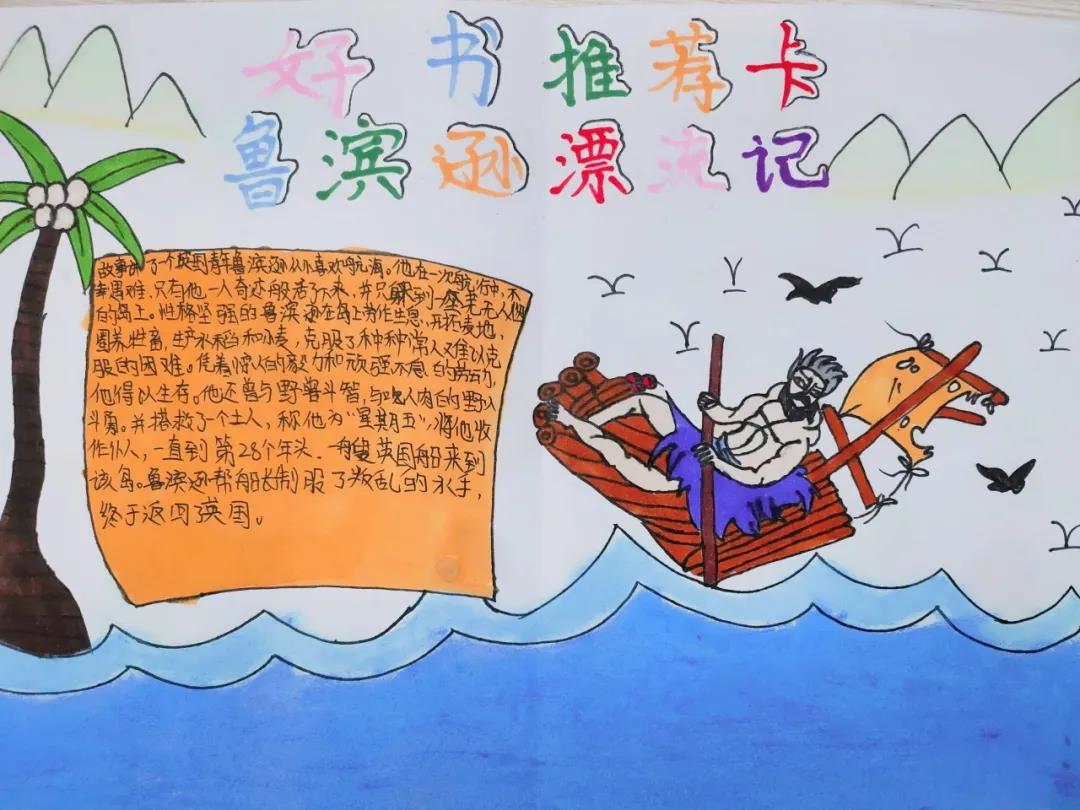 好书推荐卡
鲁滨逊漂流记
故事讲了一个英国青年鲁滨逊从小喜欢航海。他在一次航行中,不
幸遇难,只有他一人奇迹般活了下来,并只身到一座荒无人烟
的岛上。性格坚强的鲁滨逊在岛上劳作生息,开拓麦地,
圈养牲畜,生产水稻和小麦,克服了种种常人难以克
服的困难。凭着惊人的毅力和顽强不息的劳动
他得以生存。他还曾与野兽斗智,与吃人肉的野人
斗勇。并搭救了个土人,称他为“星期五”,将他收
作仆人,一直到第28个年头,一艘英国船来到
该岛。鲁滨逊帮船长制服了叛乱的水手,
终于返回英国。